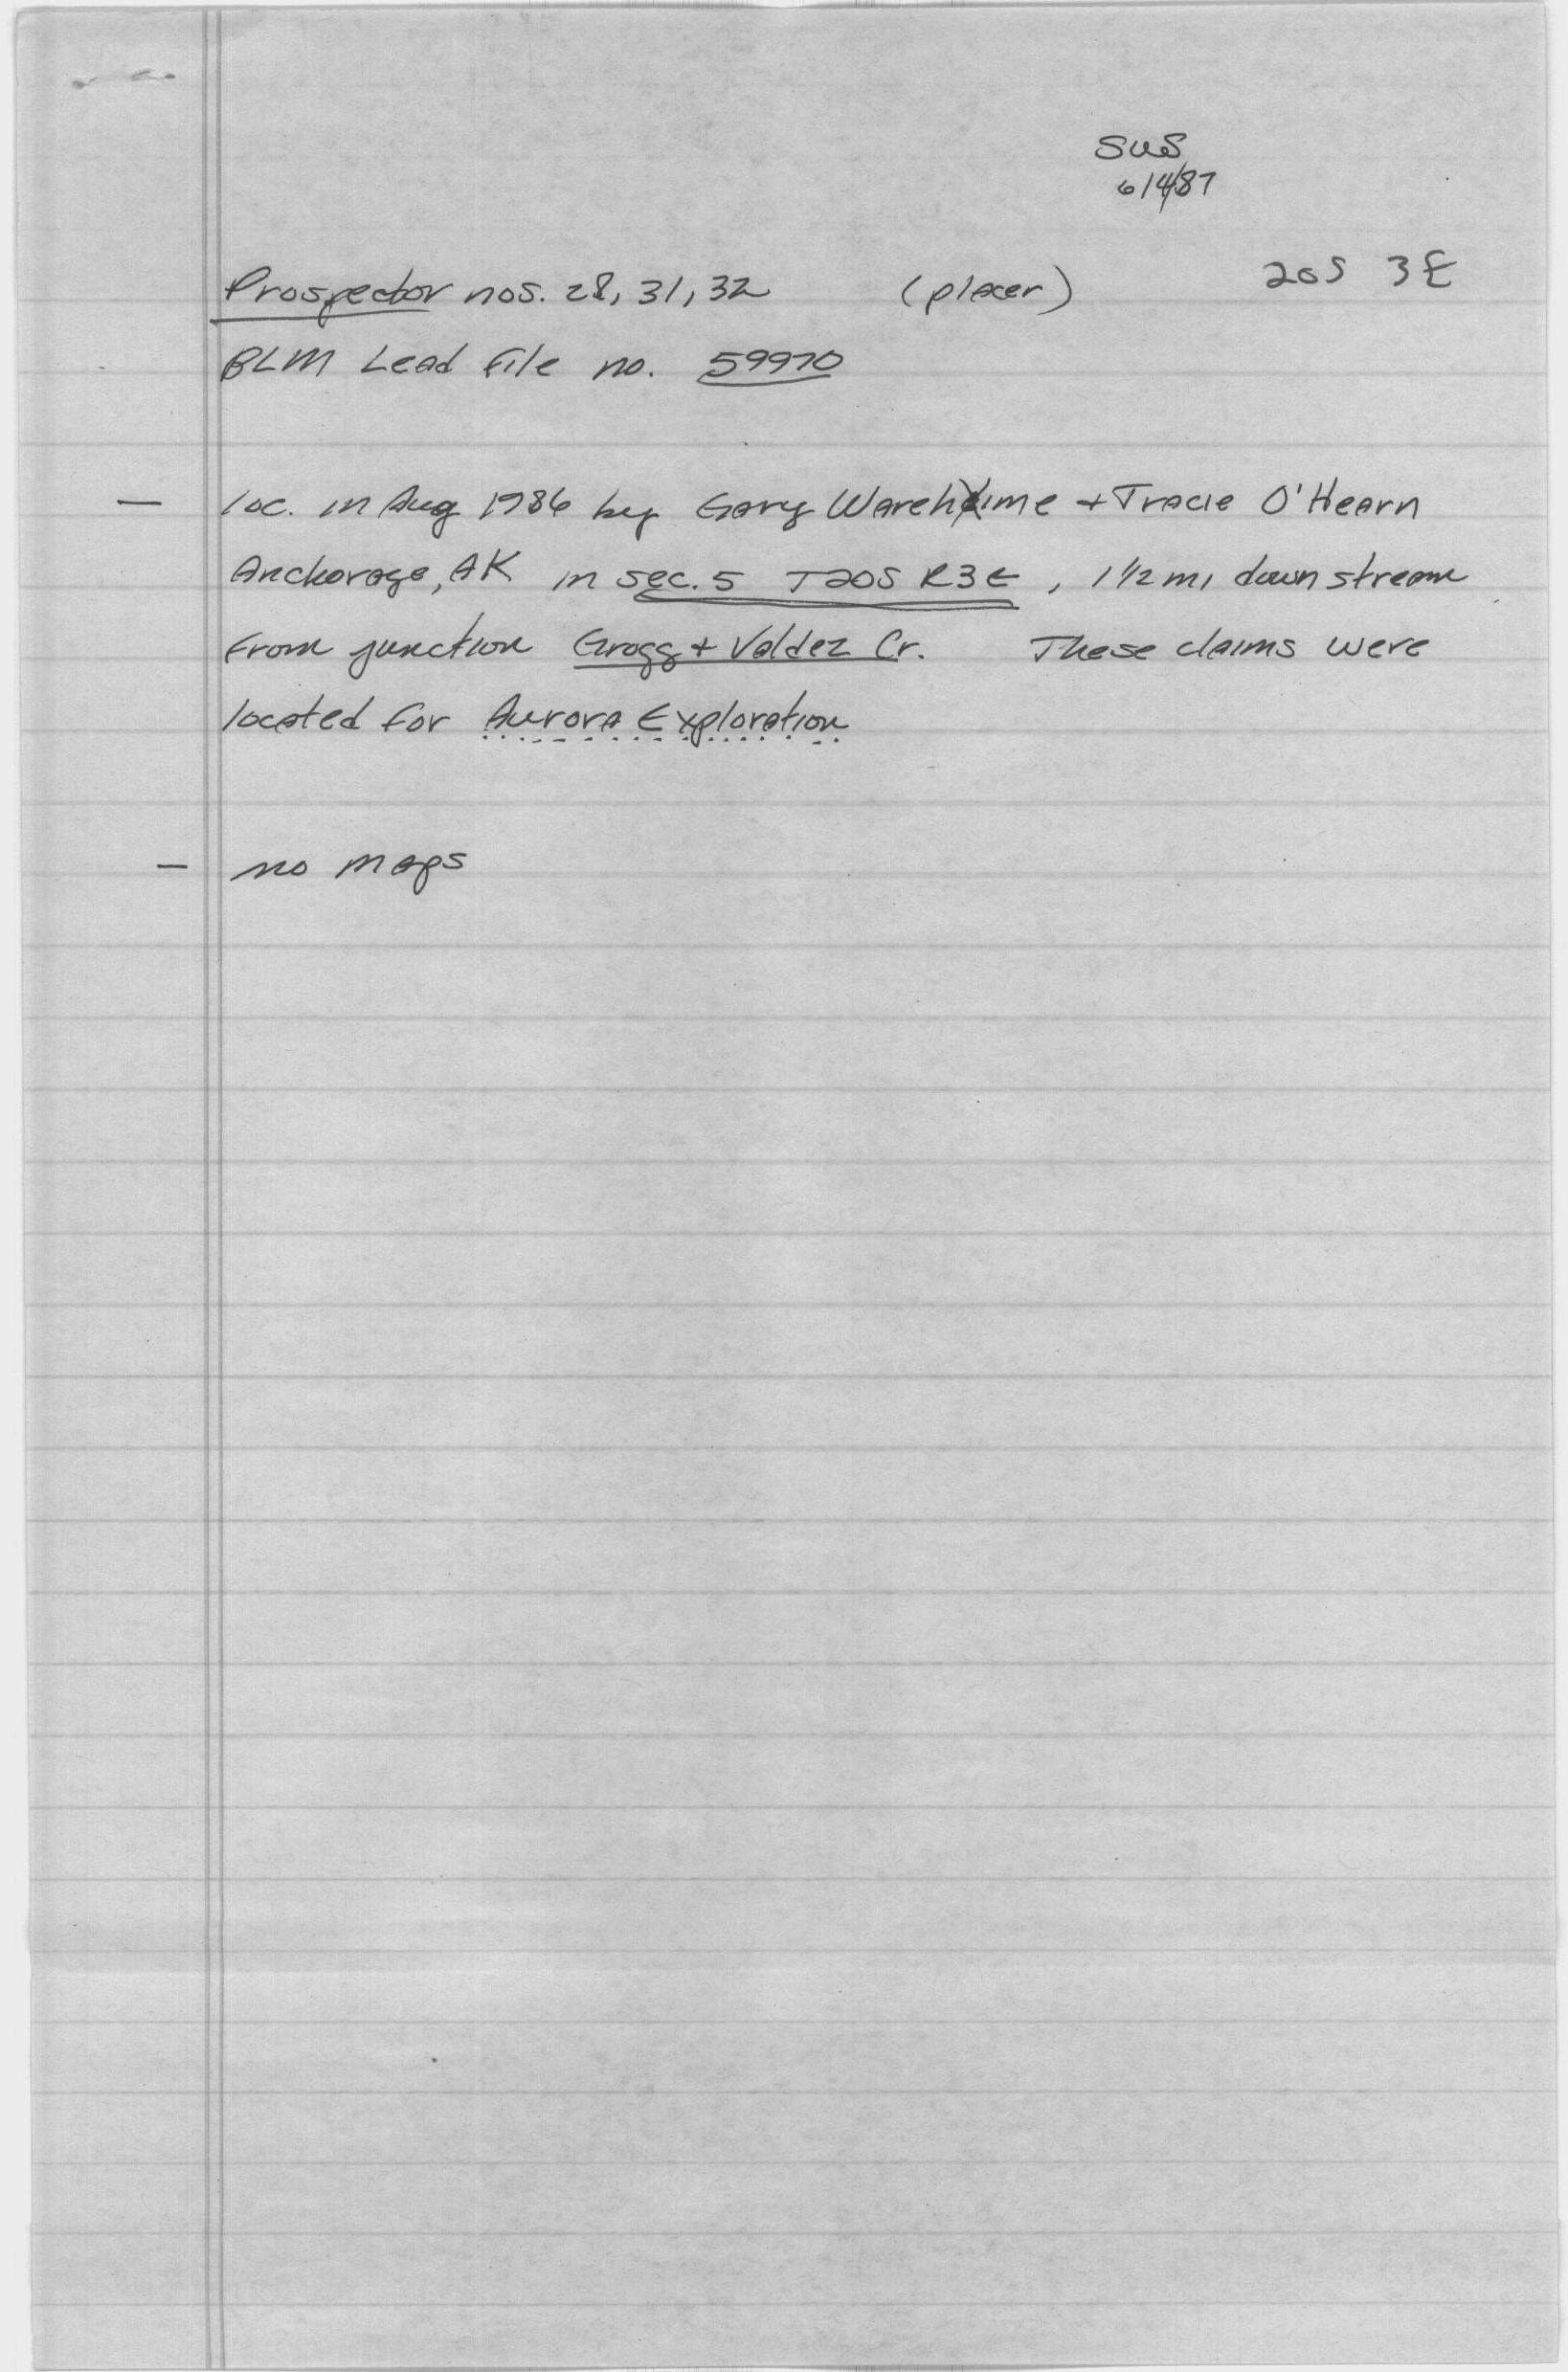 SWS
6/4/87
20S 3E
Prospector nos. 28, 31, 32 (placer)
BLM Lead File no. 59970
— loc. in Aug 1986 by Gary Warehime + Tracie O'Hearn
Anchorage, AK in sec. 5 T20S R3E, 1 1/2 mi downstream
from junction Grogg + Valdez Cr. These claims were
located for Aurora Exploration
— no maps